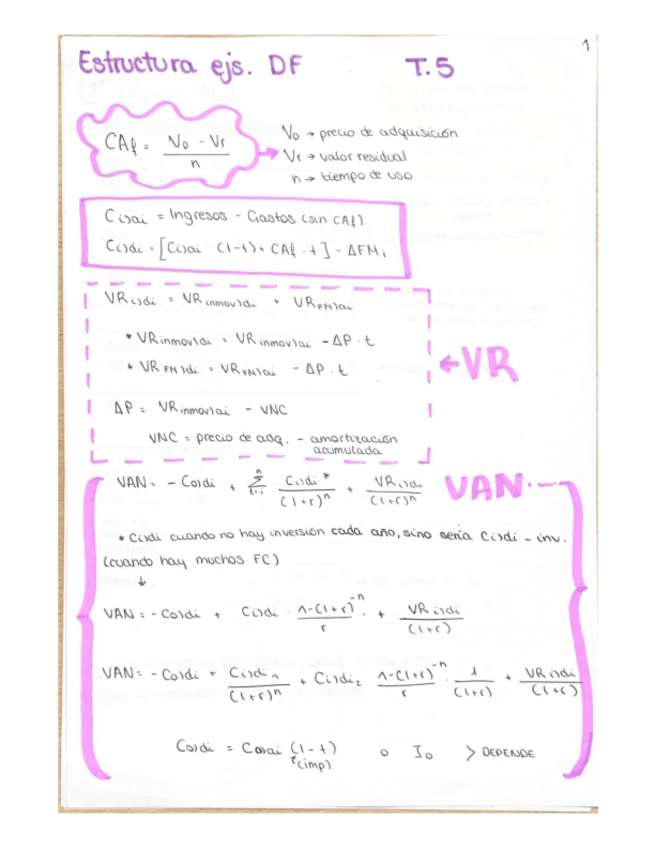 1
Estructura ejs. DF T.5
CAf = (V0 - Vr) / n
V0 → precio de adquisición
Vr → valor residual
n → tiempo de uso
C1)ai = Ingresos - Gastos (sin CAf)
C1)di = [C1)ai · (1-t) + CAf · t] - ΔFM1
VR1)di = VRinmov)di + VRFM)ai
* VRinmov)di = VRinmov)ai - ΔP · t
* VRFM)di = VRFM)ai - ΔP · t
ΔP = VRinmov)ai - VNC
VNC = precio de adq. - amortización
acumulada
← VR
VAN = - C0)di + Σ C1)di* / (1+r)^n + VR1)di / (1+r)^n
VAN
* C1)di cuando no hay inversión cada año, sino sería C1)di - inv.
(cuando hay muchos FC)
↓
VAN = - C0)di + C1)di · (1-(1+r)^-n) / r · + VR1)di / (1+r)
VAN = - C0)di + C1)di1 / (1+r)^n + C1)di2 (1-(1+r)^-n) / r · 1 / (1+r) + VR1)di / (1+r)
C0)di = C0)ai (1-t) o I0 > DEPENDE
(imp)